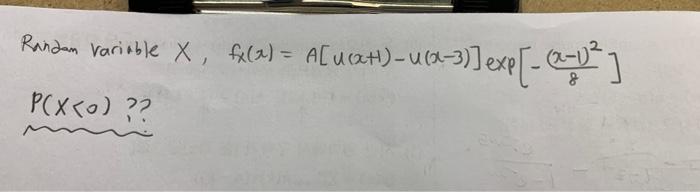 Random variable X, fx(x) = A[u(x+1)-u(x-3)]exp[-(x-1)²/8]
P(X<0) ??